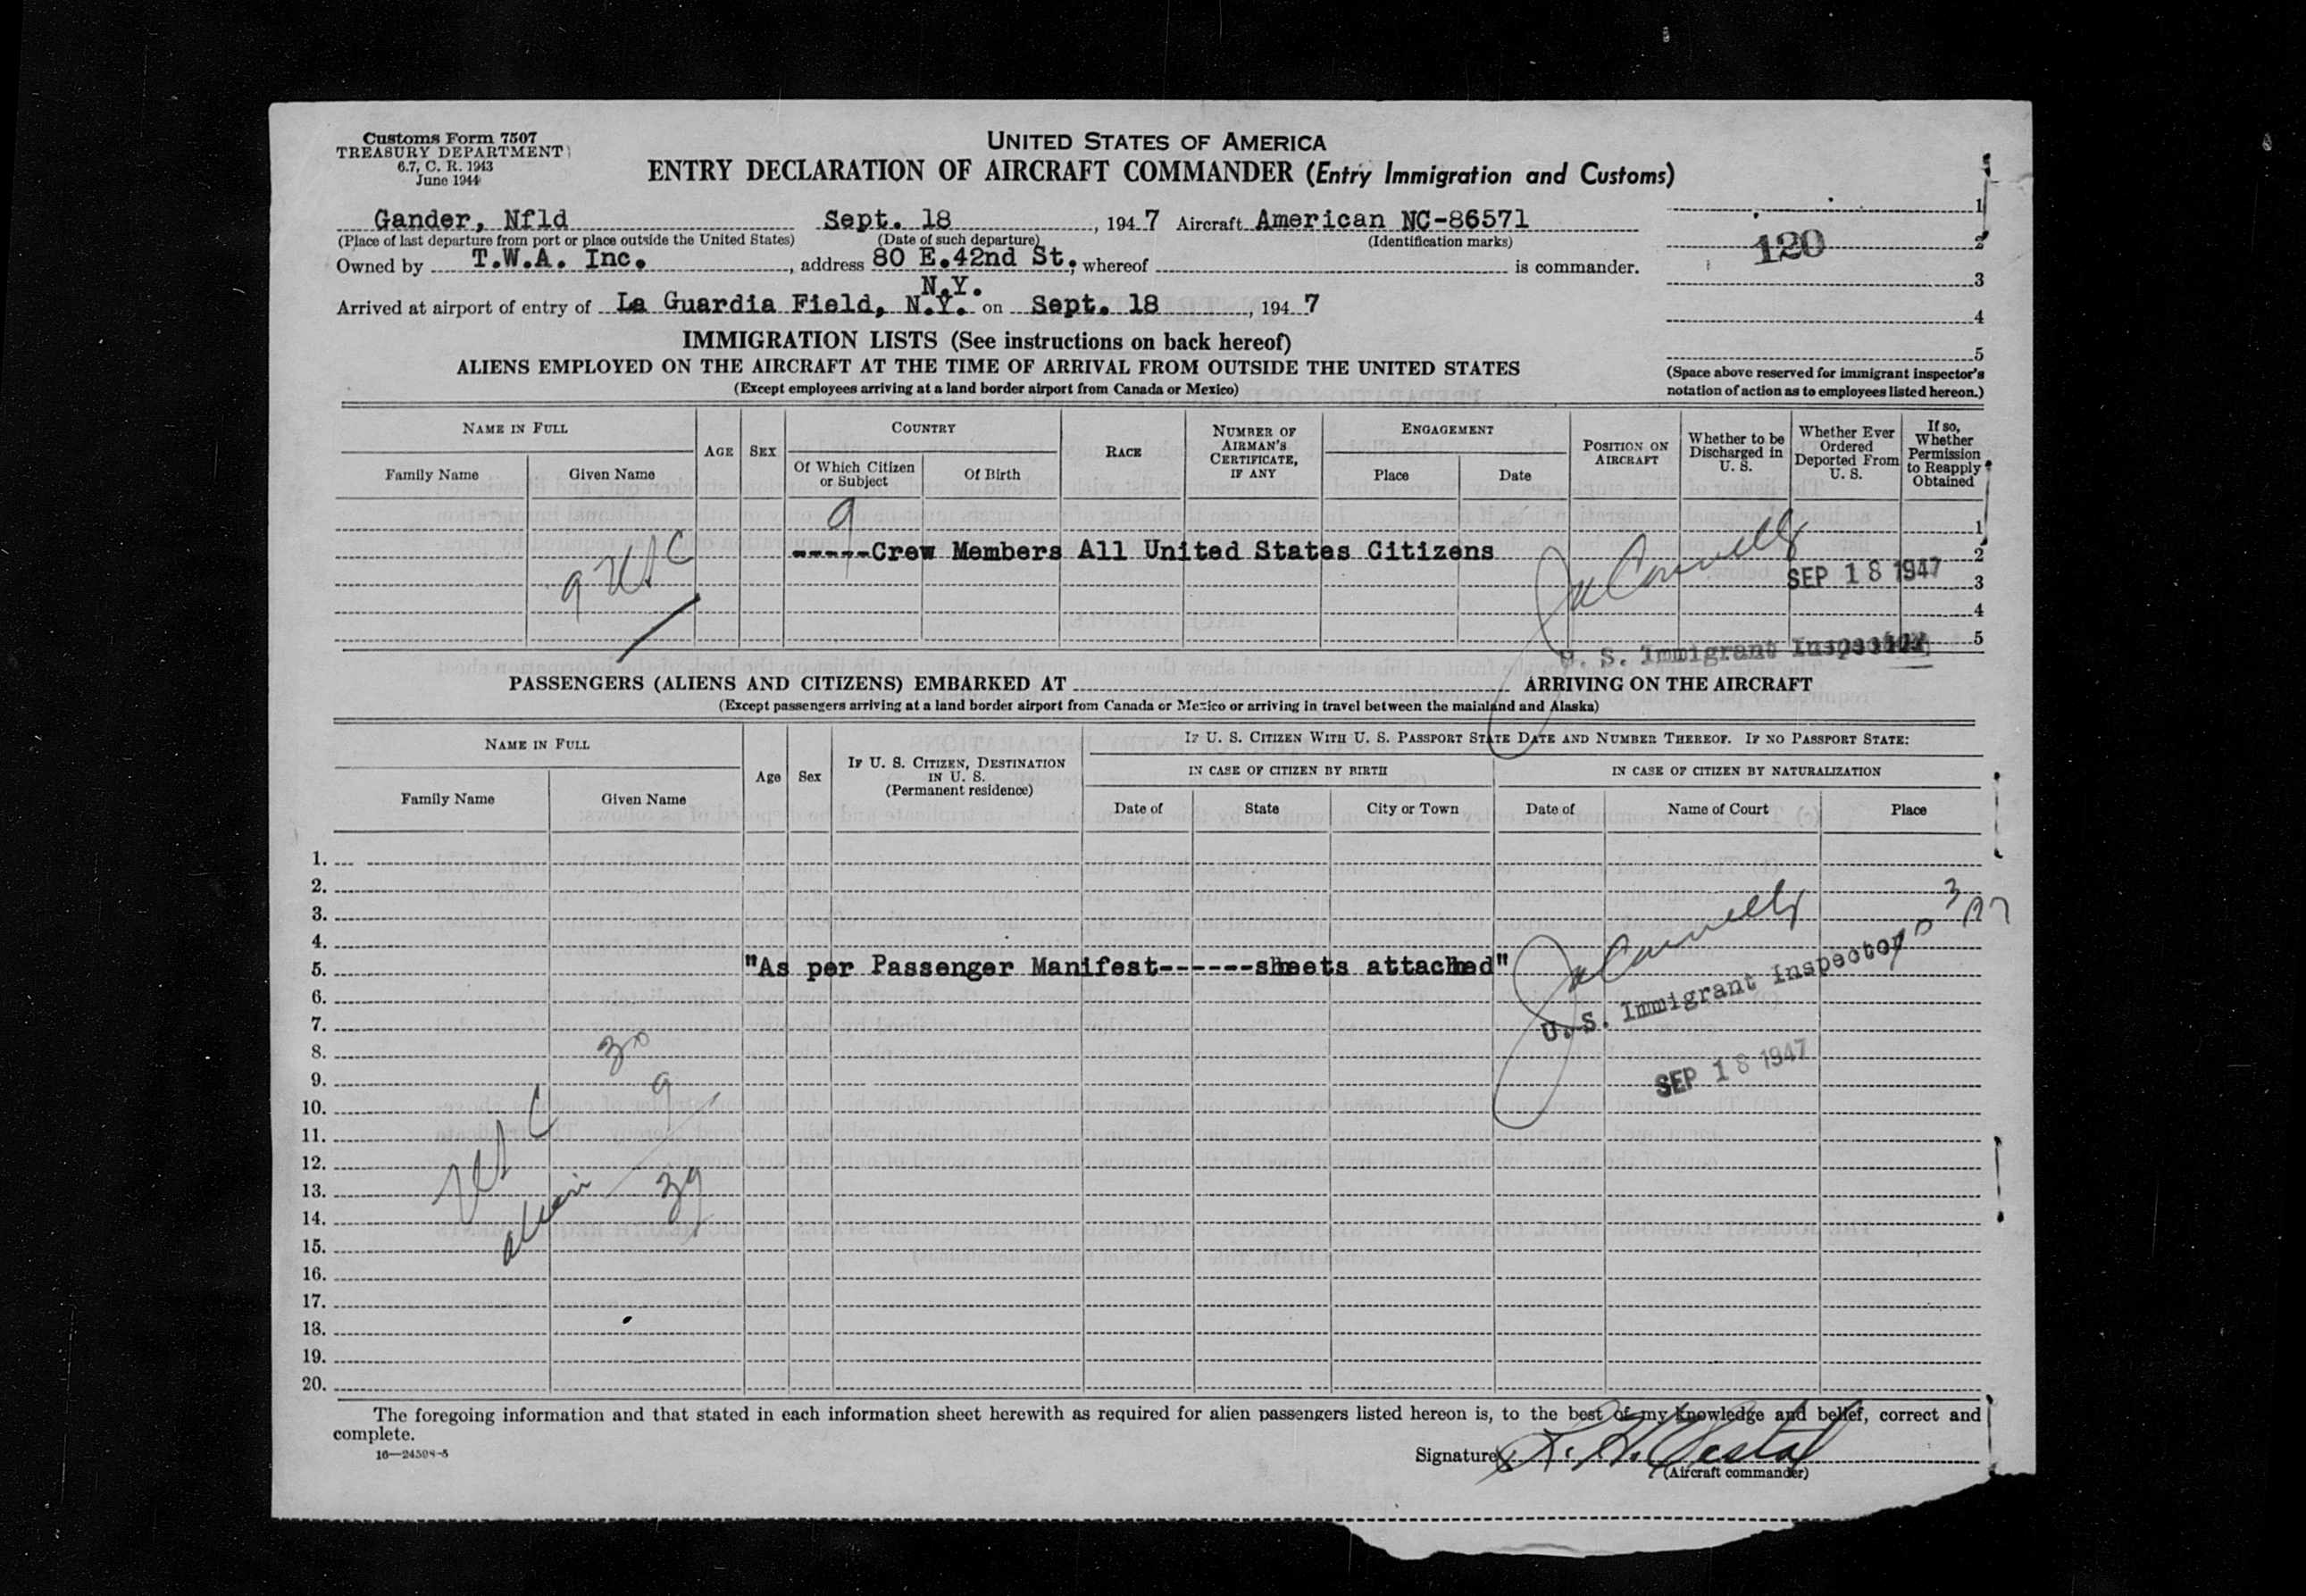 Customs Form 7507
TREASURY DEPARTMENT
6.7, C. R. 1943
June 1944
UNITED STATES OF AMERICA
ENTRY DECLARATION OF AIRCRAFT COMMANDER (Entry Immigration and Customs)
Gander, Nfld Sept. 18, 1947 Aircraft American NC-86571
(Place of last departure from port or place outside the United States) (Date of such departure) (Identification marks)
Owned by T.W.A. Inc., address 80 E.42nd St. N.Y., whereof is commander.
Arrived at airport of entry of La Guardia Field, N.Y. on Sept. 18, 1947
1
120
2
3
4
5
(Space above reserved for immigrant inspector's
notation of action as to employees listed hereon.)
IMMIGRATION LISTS (See instructions on back hereof)
ALIENS EMPLOYED ON THE AIRCRAFT AT THE TIME OF ARRIVAL FROM OUTSIDE THE UNITED STATES
(Except employees arriving at a land border airport from Canada or Mexico)
NAME IN FULL
Family Name
Given Name
AGE
SEX
COUNTRY
Of Which Citizen or Subject
Of Birth
RACE
NUMBER OF AIRMAN'S CERTIFICATE, IF ANY
ENGAGEMENT
Place
Date
POSITION ON AIRCRAFT
Whether to be Discharged in U. S.
Whether Ever Ordered Deported From U. S.
If so, Whether Permission to Reapply Obtained
9
1
-----Crew Members All United States Citizens
2
9 USC
SEP 18 1947
3
4
5
U. S. Immigrant Inspector
PASSENGERS (ALIENS AND CITIZENS) EMBARKED AT ARRIVING ON THE AIRCRAFT
(Except passengers arriving at a land border airport from Canada or Mexico or arriving in travel between the mainland and Alaska)
NAME IN FULL
Family Name
Given Name
Age
Sex
IF U. S. CITIZEN, DESTINATION IN U. S.
(Permanent residence)
IF U. S. CITIZEN WITH U. S. PASSPORT STATE DATE AND NUMBER THEREOF. IF NO PASSPORT STATE:
IN CASE OF CITIZEN BY BIRTH
IN CASE OF CITIZEN BY NATURALIZATION
Date of
State
City or Town
Date of
Name of Court
Place
1.
2.
3.
4.
5. "As per Passenger Manifest------sheets attached"
U. S. Immigrant Inspector
6.
7.
8. 30
SEP 18 1947
9. 9
10.
11. USC
12.
13. alien 39
14.
15.
16.
17.
18.
19.
20.
The foregoing information and that stated in each information sheet herewith as required for alien passengers listed hereon is, to the best of my knowledge and belief, correct and
complete.
16—24598-5
Signature
(Aircraft commander)